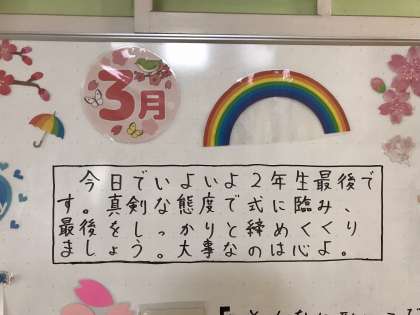 3月
今日でいよいよ2年生最後で
す。真剣な態度で式に臨み、
最後をしっかりと締めくくり
ましょう。大事なのは心よ。